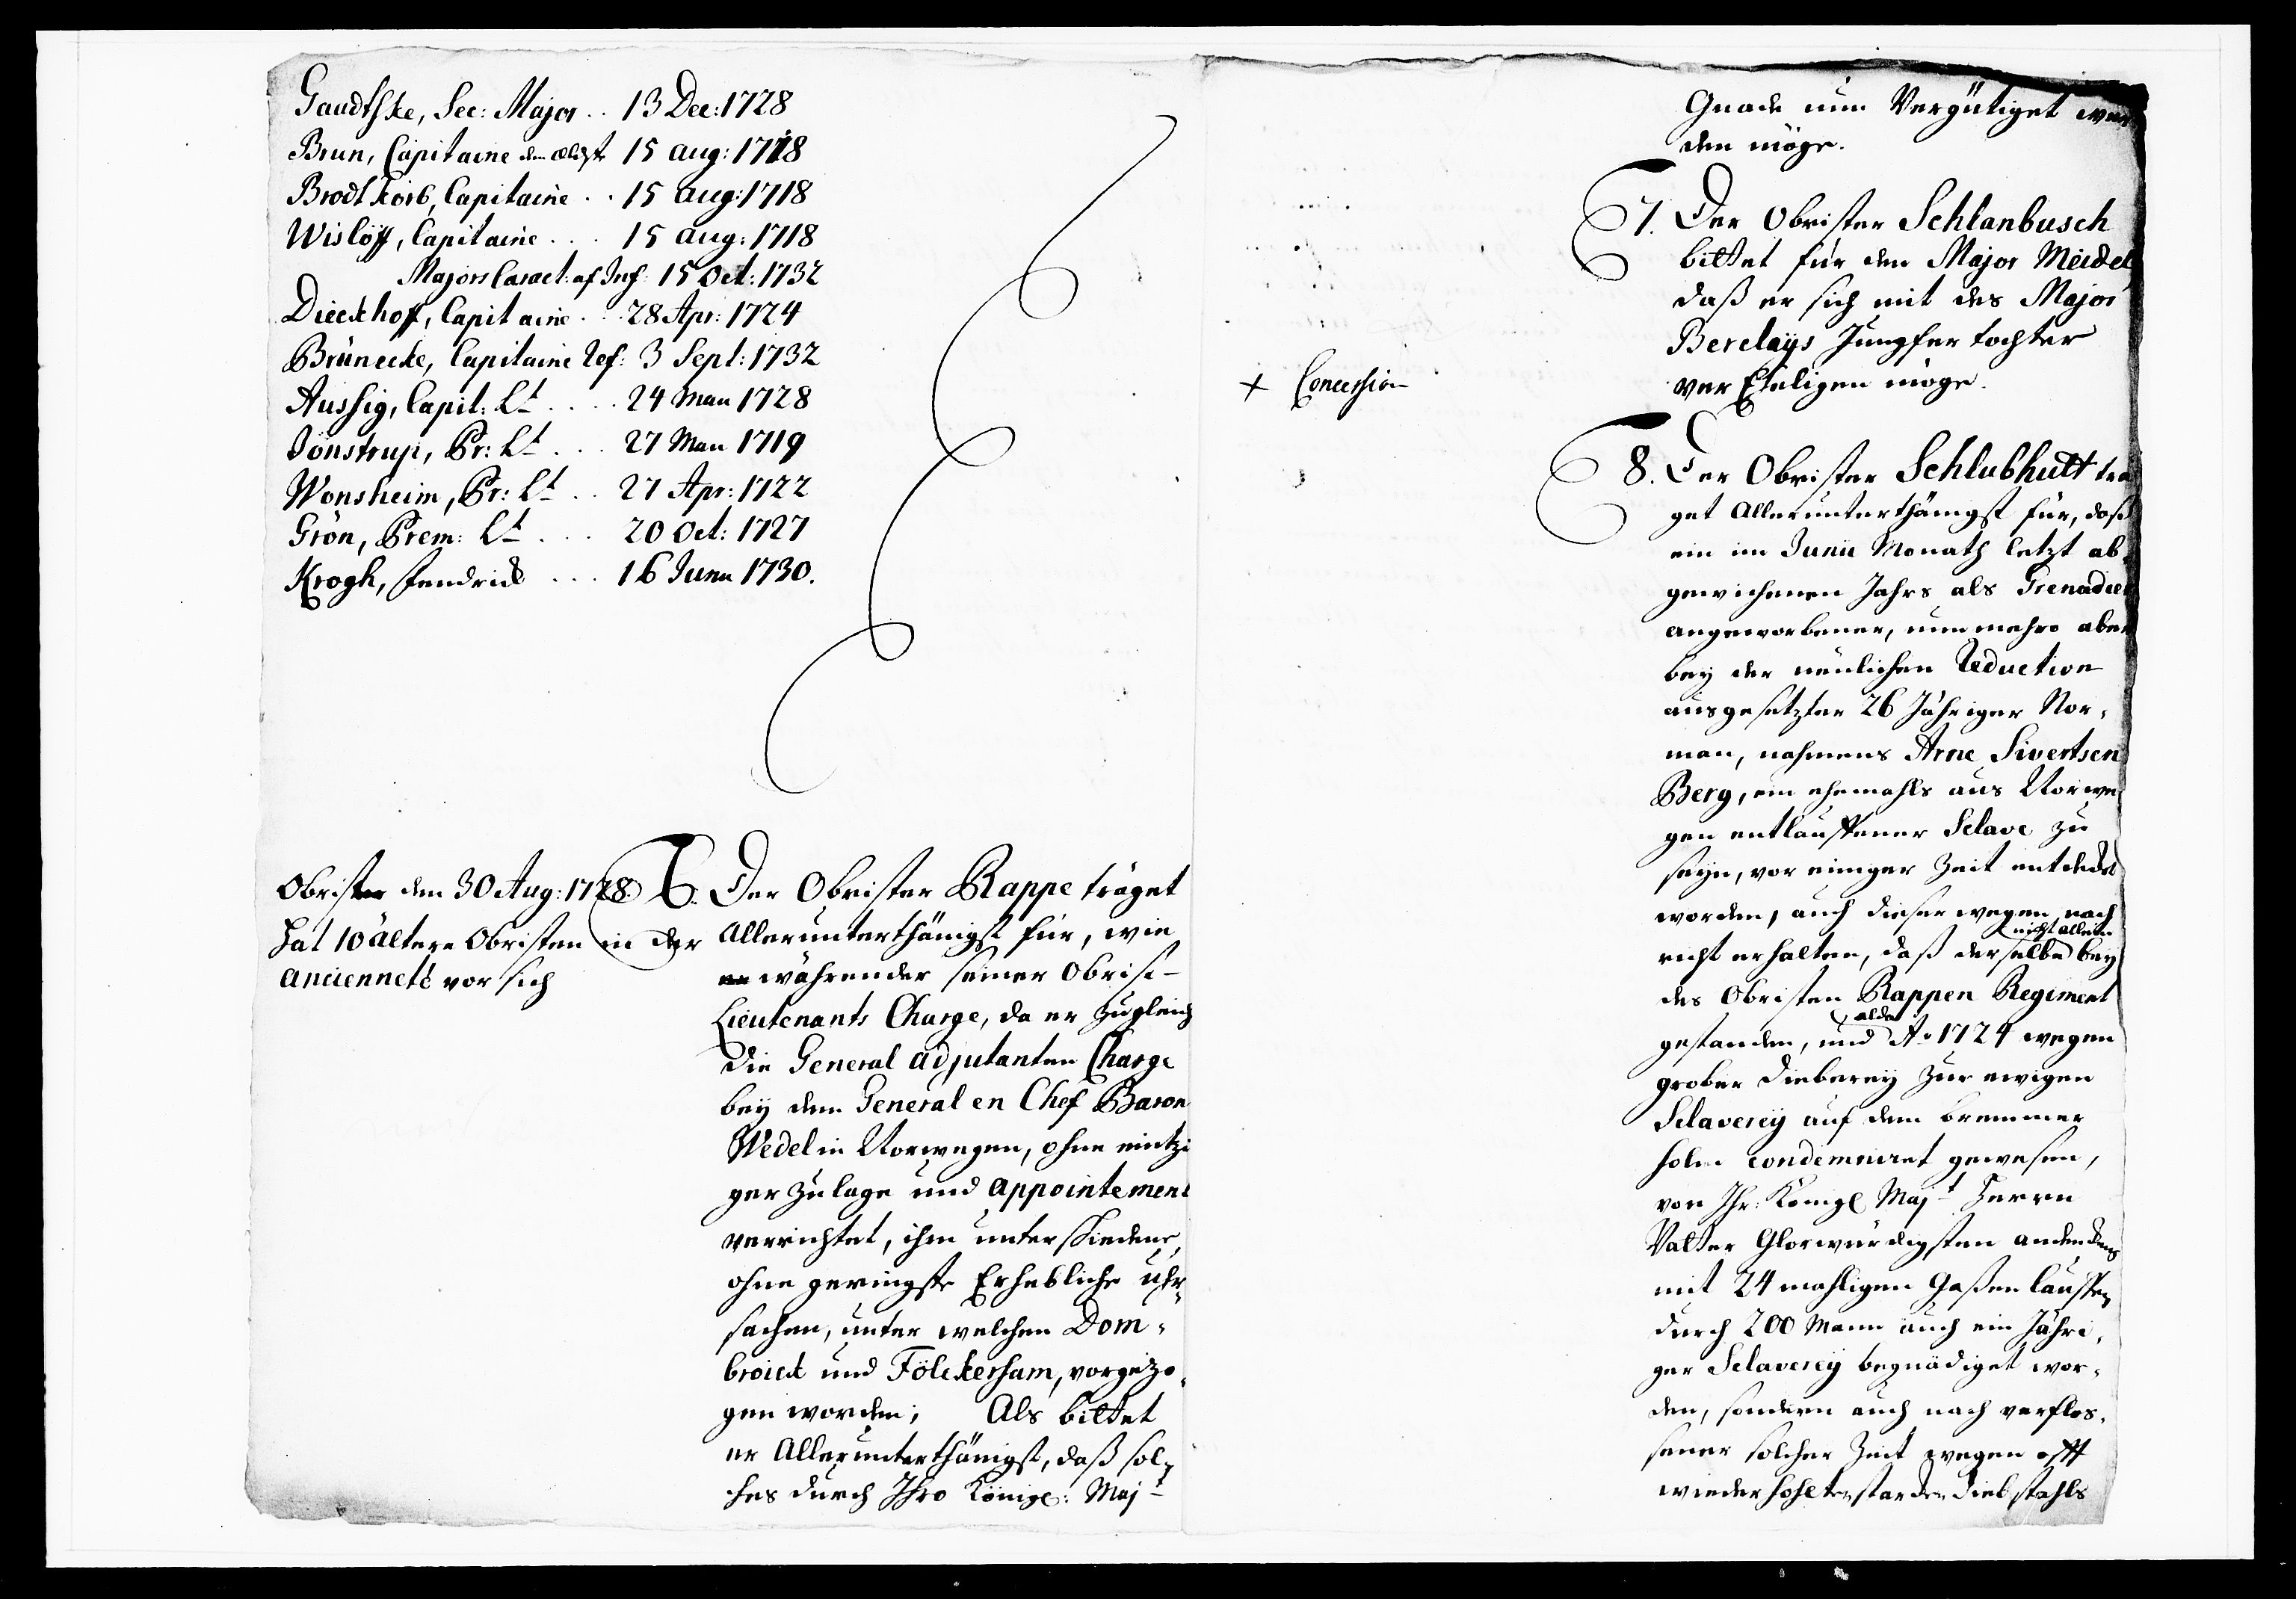 Gaudtske, Sec: Major .. 13 Dec: 1728
Brun, Capitaine den ældste 15 Aug: 1718
Brodtkorb, Capitaine .. 15 Aug: 1718
Wislöff, Capitaine ... 15 Aug: 1718
Majors Caract: af Inf: 15 Oct: 1732
Dieckhoff, Capitaine .. 28 Apr: 1724
Brünecke, Capitaine Ref: 3 Sept: 1732
Aussig, Capit: Lt .... 24 Man 1728
Jönstrup, Pr: Lt ... 27 Man 1719
Wonsheim, Pr: Lt .. 27 Apr: 1722
Grön, Prem: Lt ... 20 Oct: 1727
Krogh, Fendrick ... 16 Junii 1730.
Obrister den 30 Aug: 1728.
hat 10 ältere Obristen in der
Ancienneté vor sich
6. Der Obrister Rappe träget
Allerunterthänigst für, wie
er währender seiner Obrist-
Lieutenants Charge, da er zugleich
die General Adjutanten Charge
bey dem General en Chef Baron
Wedel in Norwegen, ohne eintzi
ger Zulage und Appointement
verrichtet, ihm unterschiedene,
ohne geringste Erhebliche Uhr-
sachen, unter welchen Dom-
broick und Fölckersam, vorgezo-
gen worden; Als bittet
er Allerunterthänigst, daß sol-
ches durch Ihro Königl: Majt
Gnade nun Vergütiget wer
den möge.
7. Der Obrister Schlanbusch
bittet für den Major Meidel
daß er sich mit des Major
Berclays Jungfer tochter
ver Eheligen möge.
+ Concession
8. Der Obrister Schlubhutt trä
get Allerunterthänigst für, daß
ein im Junii Monath letzt ab-
gewichenen Jahrs als Grenadier
angeworbener, nunmehro aber
bey der neulichen Reduction
ausgesetzter 26 Jähriger Nor-
man, nahmens Arne Sivertsen
Berg, ein ehemahls aus Norwe
gen entlauffener Sclave zu
seyn, vor einiger Zeit entdeckt
worden, auch dieser wegen nach
richt erhalten, daß derselbe nicht allein bey
des Obristen Rappen Regiment
gestanden, und alda Ao 1724 wegen
grober Dieberey zur ewigen
Sclaverey auf dem bremmer
holm condemniret gewesen,
von Ihr: Königl Majt Herrn
Vatter Glorwürdigsten andenckens
mit 24 mahligen Gaßenlauffen
durch 200 Mann auch ein Jähri-
ger Sclaverey begnädiget wor-
den, sondern auch nach verflos-
sener solcher Zeit wegen offt
wiederhohlten starcken Diebstahls